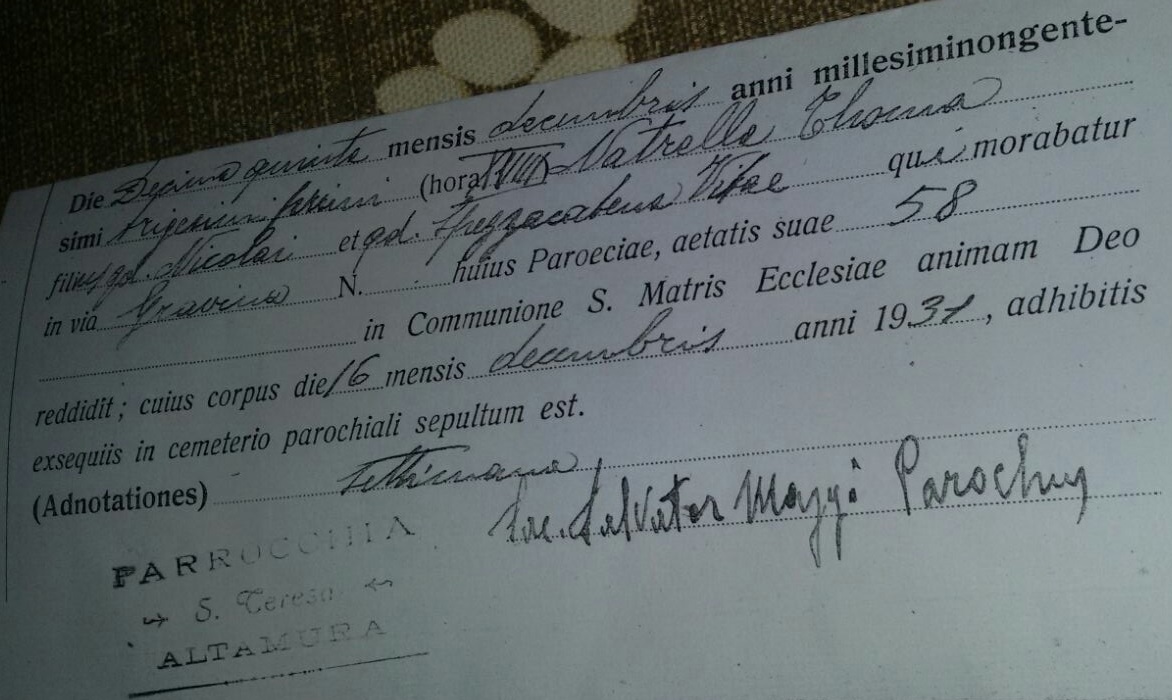 Die Decima quinta mensis decembris anni millesiminongente-
simi trigesimi primi (hora XVIII) Natrella Thoma
filius qd. Nicolai et qd. Frezzacabens Vitae qui morabatur
in via Gravina N. huius Paroeciae, aetatis suae 58
in Communione S. Matris Ecclesiae animam Deo
reddidit; cuius corpus die 16 mensis decembris anni 1931, adhibitis
exsequiis in cemeterio parochiali sepultum est.
(Adnotationes) Settimana
Sac. Salvator Maggi Parochus
PARROCCHIA
S. Teresa
ALTAMURA